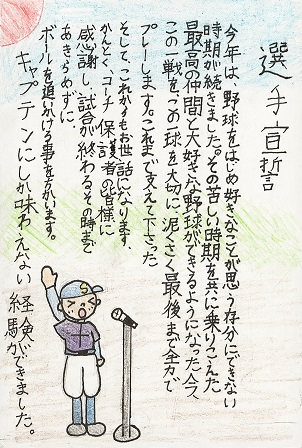 選手宣誓
今年は、野球をはじめ好きなことが思う存分にできない
時期が続きました。その苦しい時期を共に乗りこえた
最高の仲間と大好きな野球ができるようになった今、
この一戦を、この一球を大切に、泥くさく最後まで全力で
プレーします。これまで支えて下さった
そして、これからもお世話になります、
かんとく、コーチ、保護者の皆様に
感謝し、試合が終わるその時まで
あきらめずに
ボールを追いかける事をちかいます。
キャプテンにしか味わえない経験ができました。
S